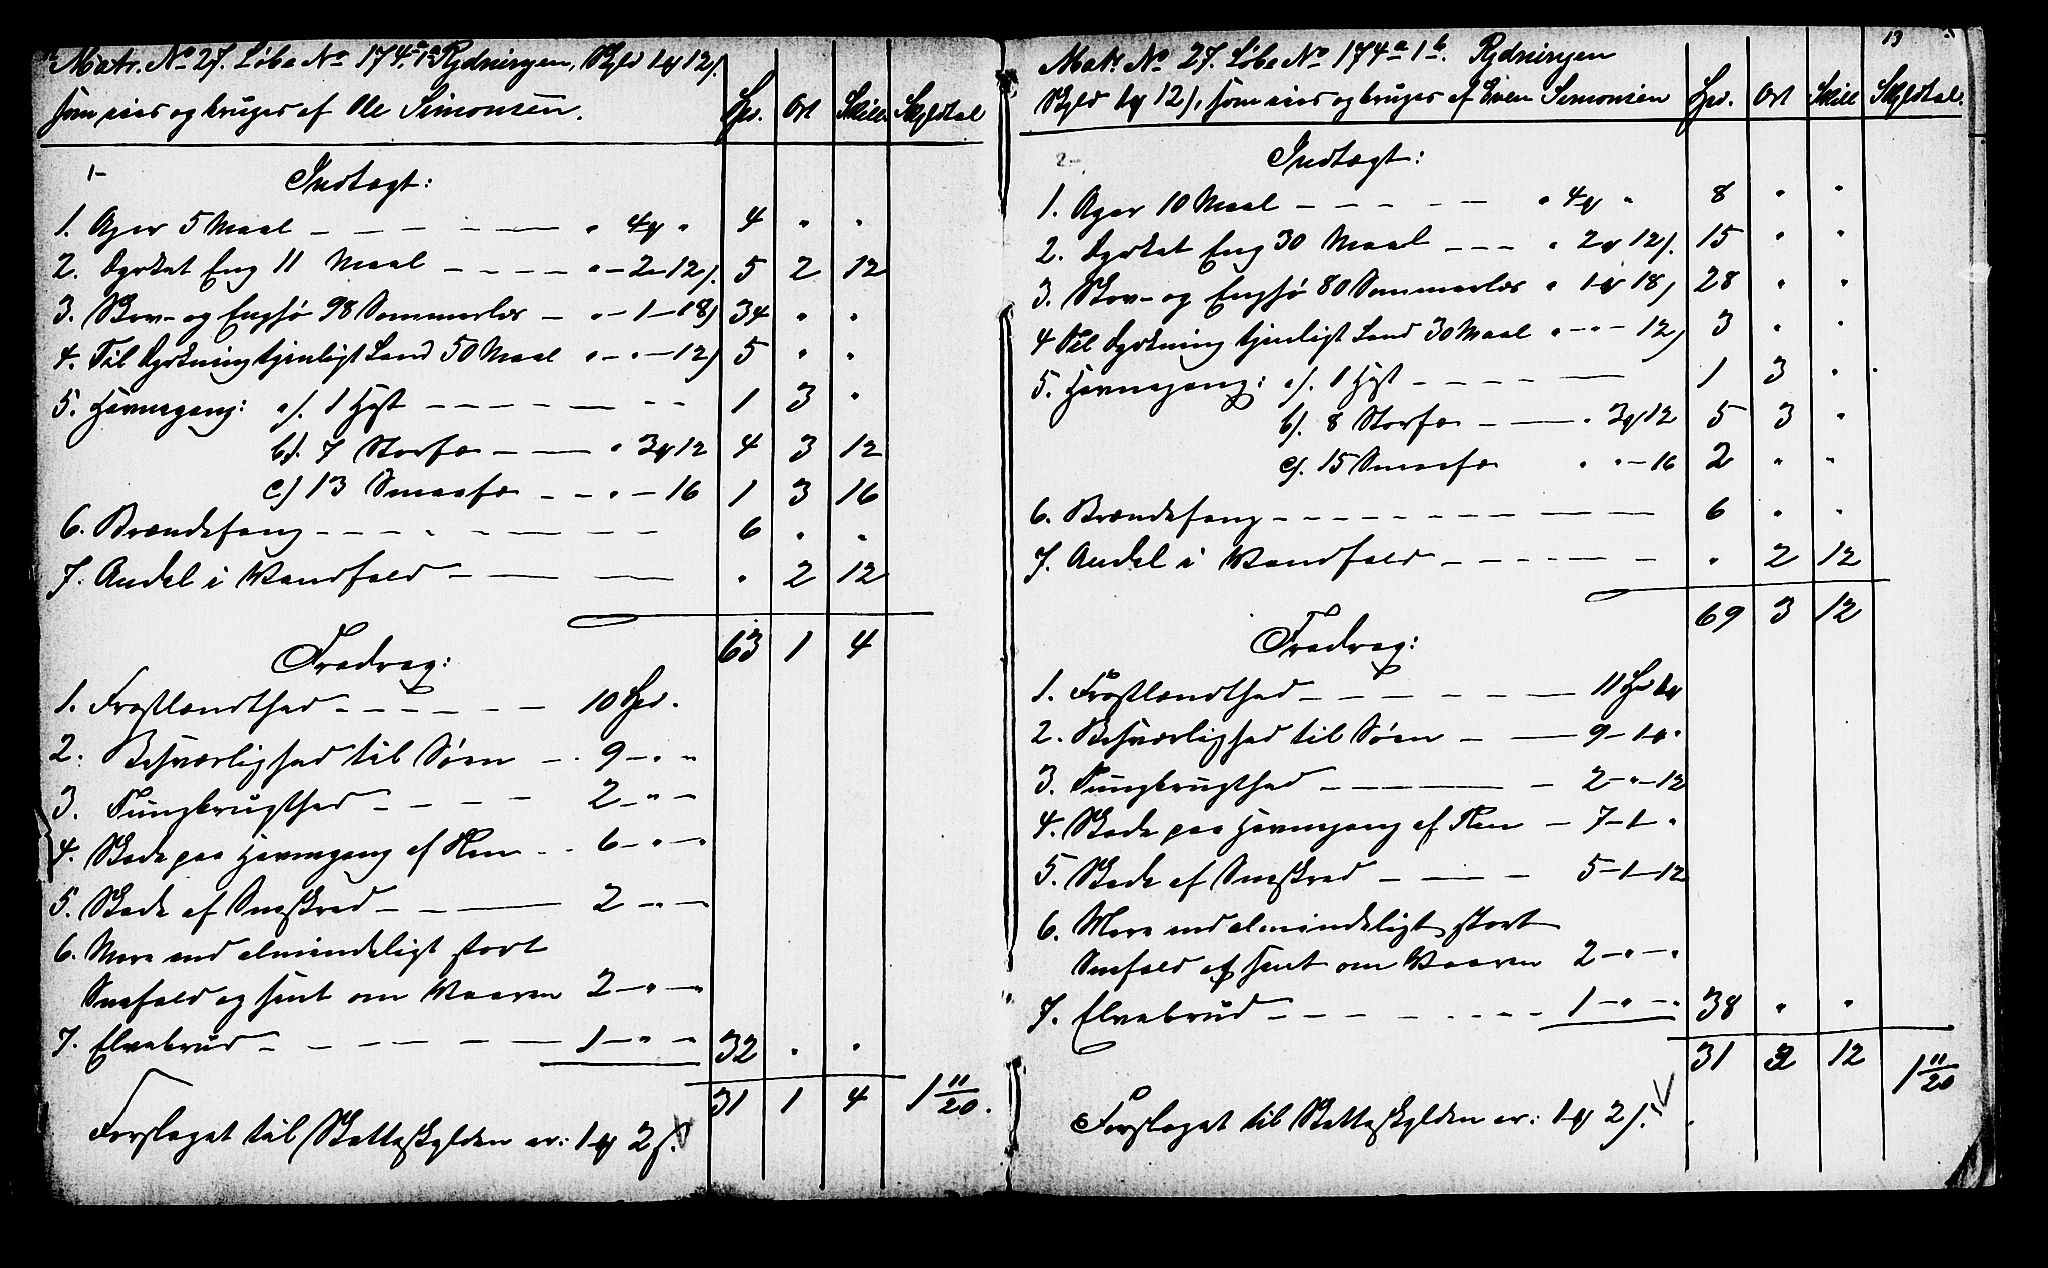 Matr. No 27. Løbe No 174a 1a Rydningen, Skyld 1 ₰ 12 s.
som eies og bruges af Ole Simonsen.
Spd. Ort Skill. Skyldtal
1-
Indtægt:
1. Ager 5 Maal — — — — " 4 ₰ " 4 " "
2. Dyrket Eng 11 Maal — — — — " - 2 - 12 s. 5 2 12
3. Skov- og Enghø 98 Sommerlæs — " - 1 - 18 s 34 " "
4. Til Dyrkning tjenligt Land 50 Maal " - " - 12 s 5 " "
5. Havnegang: a/. 1 Hest — — — — 1 3 "
b/. 7 Storfæ — — " 3 ₰ 12 4 3 12
c/ 13 Smaafæ — — " - 16 1 3 16
6. Brændefang — — — — 6 " "
7. Andel i Vandfald — — — " 2 12
63 1 4
Fradrag:
1. Frostlændthed — — — — 10 Spd.
2. Besværlighed til Søen — 9 - " "
3. Tungbrugthed — — — 2 - " -
4. Skade paa Havnegang af Ren - - 6 - " -
5. Skade af Sneskred — — — 2 - " -
6. Mere end almindeligt stort
Snefald og sent om Vaaren 2 - " -
7. Elvebrud — — — — 1 - " - 32 " "
31 1 4 1 11/20.
Forslaget til Skatteskylden er: 1 ₰ 2 s.
19
Matr. No 27. Løbe No 174a 1b. Rydningen
Skyld 1 ₰ 12 s. som eies og bruges af Even Simonsen
Spd. Ort Skill Skyldtal.
2-
Indtægt:
1. Ager 10 Maal — — — — " 4 ₰ " 8 " "
2. Dyrket Eng 30 Maal — — — " 2 ₰ 12 s. 15 " "
3. Skov- og Enghø 80 Sommerlæs " 1 ₰ 18 s 28 " "
4 Til Dyrkning tjenligt Land 30 Maal " - " - 12 s 3 " "
5. Havnegang: a/. 1 Hest — — — — 1 3 "
b/. 8 Storfæ — — " 3 ₰ 12 5 3 "
c/. 15 Smaafæ " " - 16 2 " "
6. Brændefang — — — — 6 " "
7. Andel i Vandfald — — — — " 2 12
69 3 12
Fradrag:
1. Frostlændthed — — — — 11 Spd 1 ₰
2. Besværlighed til Søen — — 9 - 1 ₰ "
3. Tungbrugthed — — — 2 - " - 12
4. Skade paa Havnegang af Ren — 7 - 1 - "
5. Skade af Sneskred — — — 5 - 1 - 12
6. Mere end almindeligt stort
Snefald og sent om Vaaren 2 - " - "
7. Elvebrud — — — — 1 - " - " 38 " "
31 3 12 1 11/20
Forslaget til Skatteskylden er: 1 ₰ 2 s.